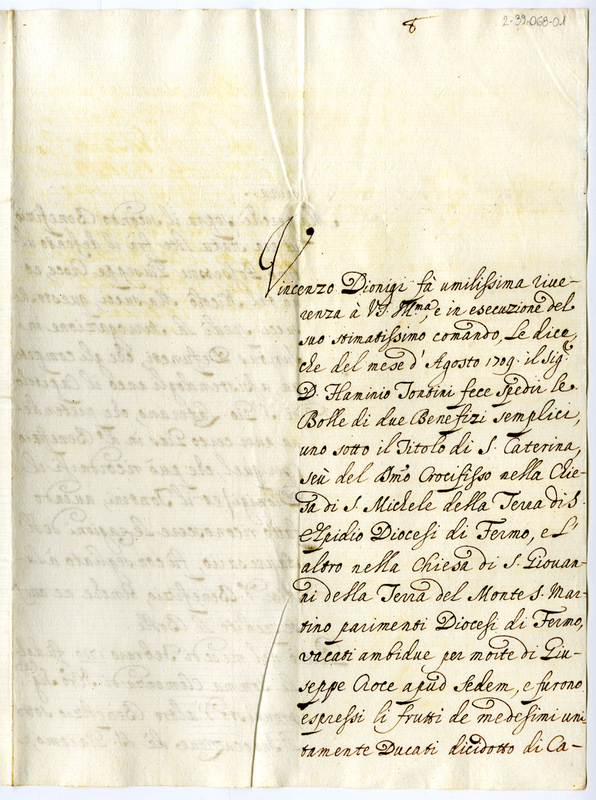 8
2-39-068-01
Vincenzo Dionigi fà umilissima rive-
renza à VS. Illma, e in esecuzione del
suo stimatissimo comando, Le dice,
che del mese d'Agosto 1709. il Sigr
D. Flaminio Tontini fece spedir le
Bolle di due Benefizi semplici,
uno sotto il Titolo di S. Caterina,
seù del Smo Crocifisso nella Chie-
sa di S. Michele della Terra di S.
Elpidio Diocesi di Fermo, e l'
altro nella Chiesa di S. Giovan-
ni della Terra del Monte S. Mar-
tino parimenti Diocesi di Fermo,
vacati ambidue per morte di Giu-
seppe Croce apud Sedem, e furono
espressi li frutti de medesimi uni
tamente Ducati dicidotto di Ca-